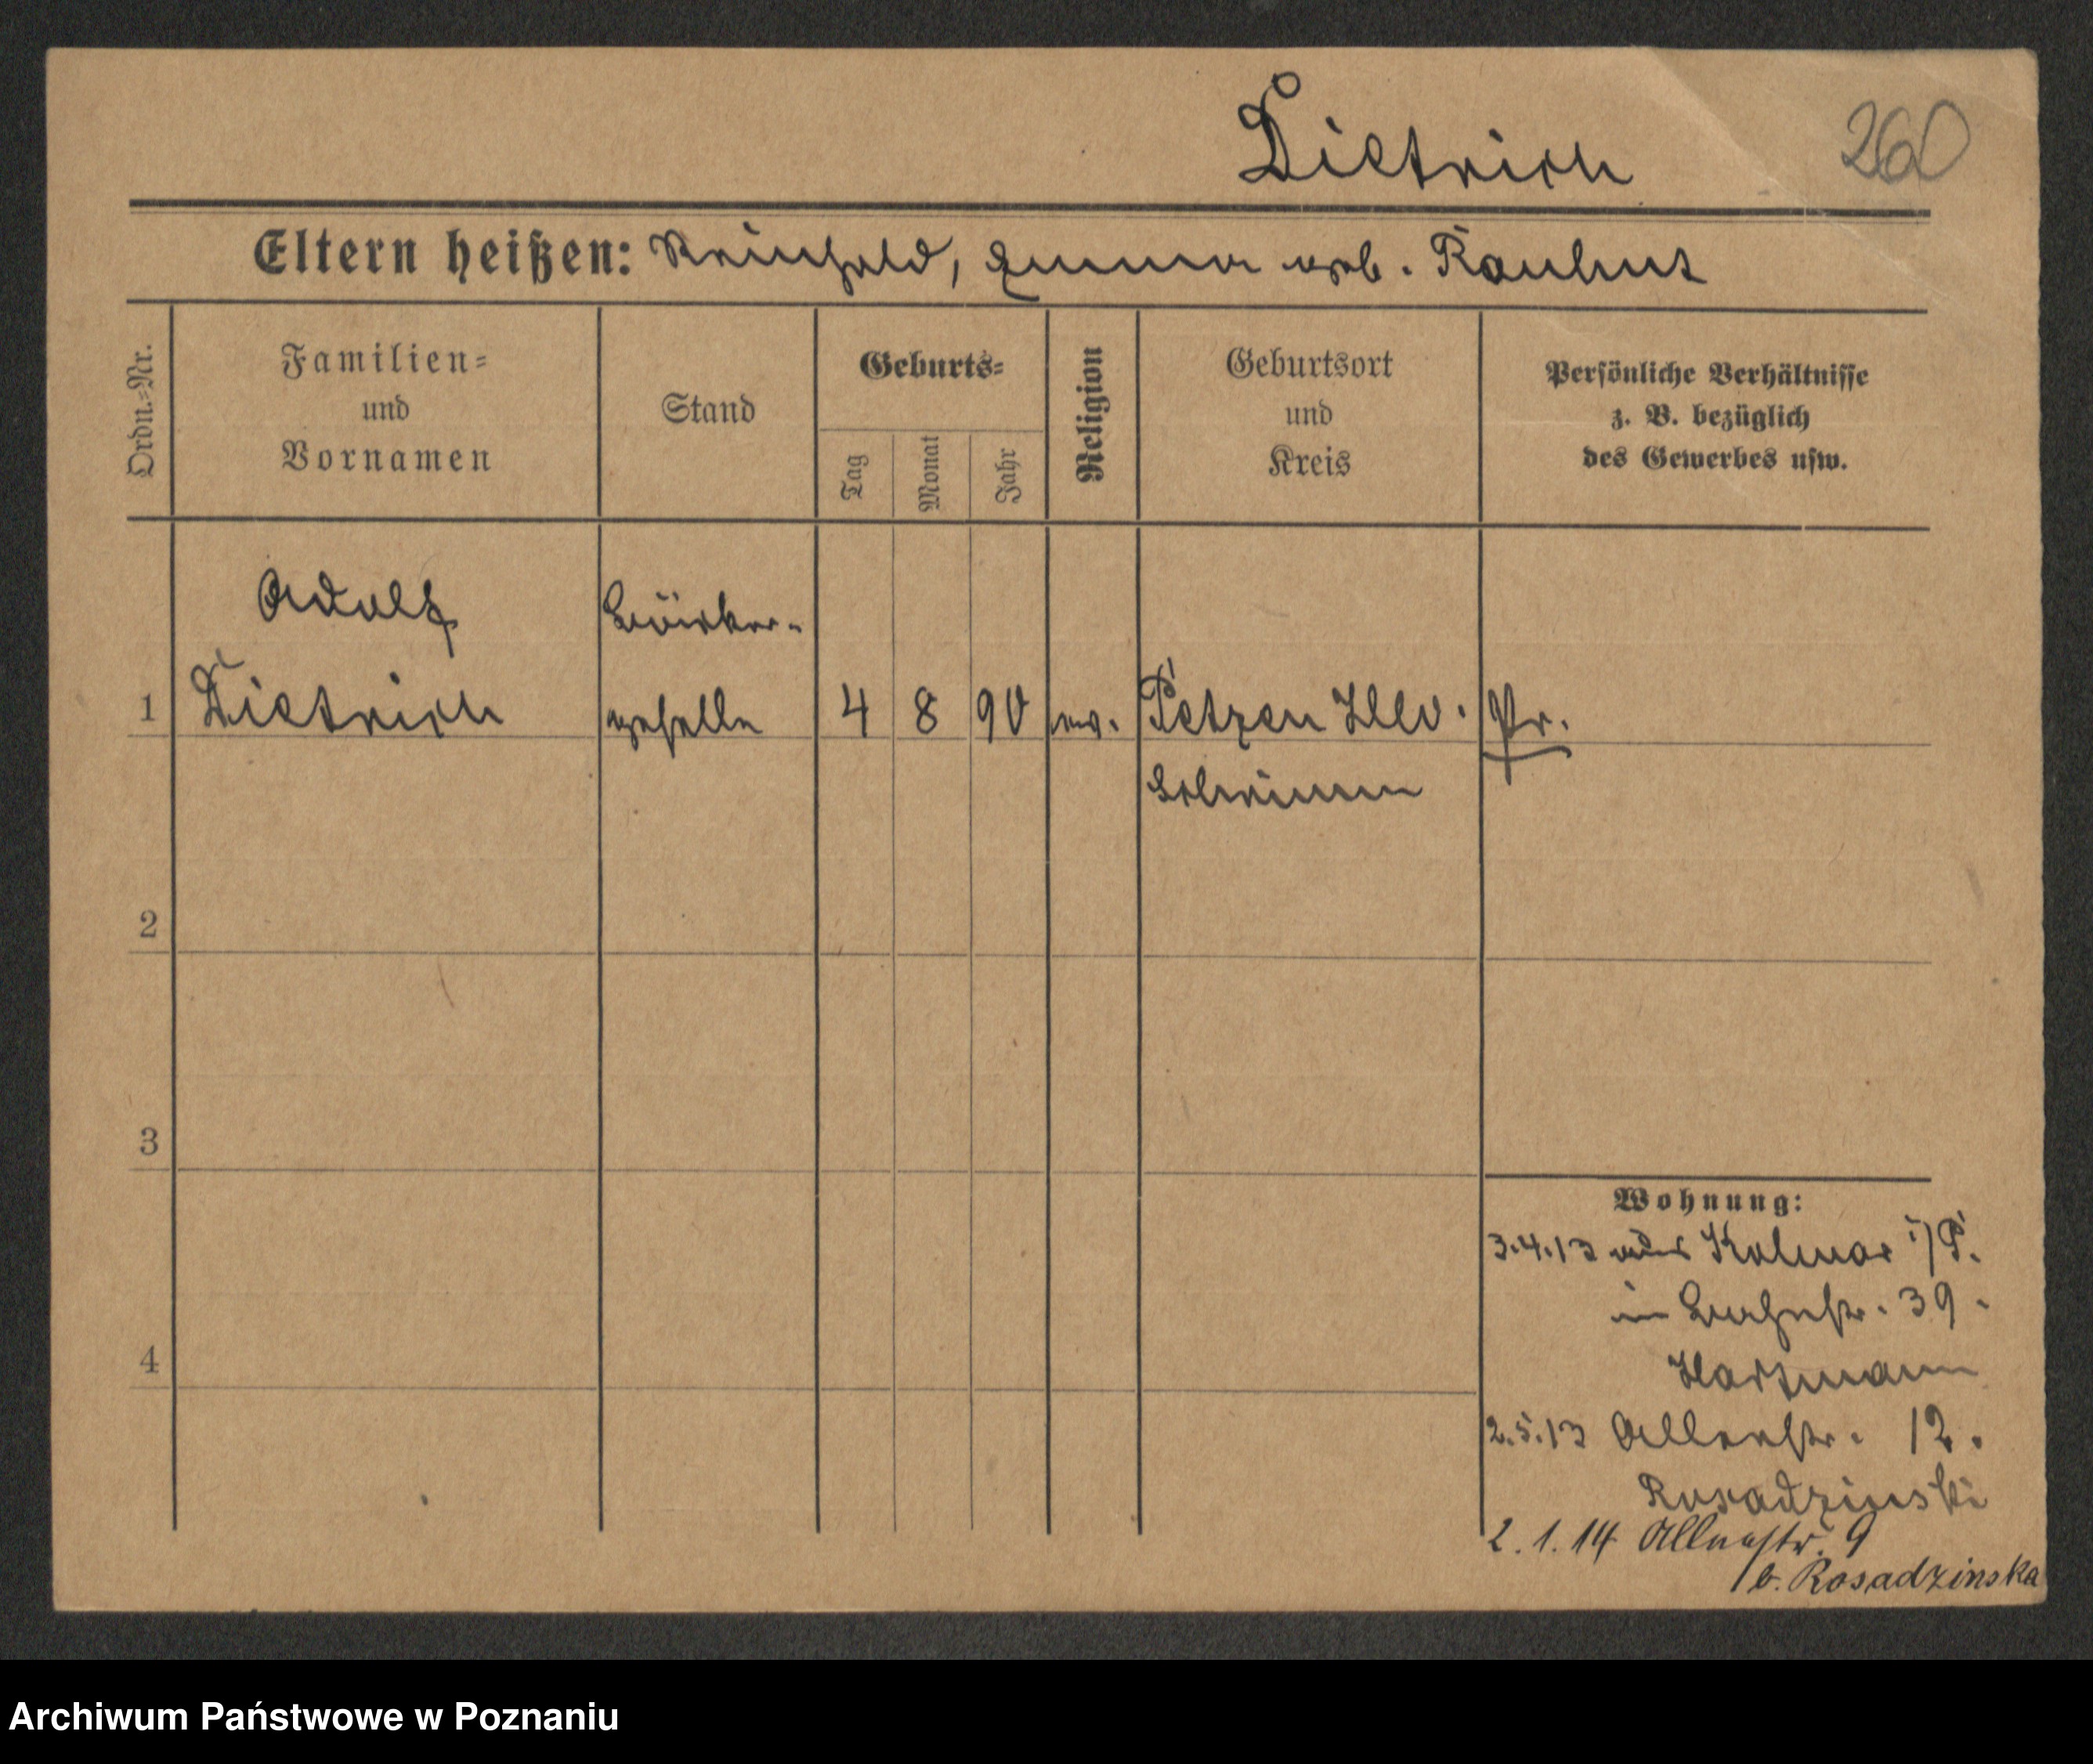 Dietrich
260
Eltern heißen: Reinhold, Emma geb. Rauhut
Ordn.-Nr.
Familien-
und
Vornamen
Stand
Geburts-
Tag
Monat
Jahr
Religion
Geburtsort
und
Kreis
Persönliche Verhältnisse
z. B. bezüglich
des Gewerbes usw.
Adolf Bäcker-
1 Dietrich geselle 4 8 90 ev. Petzen Hld. Pr.
2
3
4
Wohnung:
3.4.13 aus Kolmar i/P.
in Bahnstr. 39.
Hartmann
2.5.13 Alleestr. 12.
Rosadzinski
2.1.14 Alleestr. 9
b. Rosadzinska
Archiwum Państwowe w Poznaniu